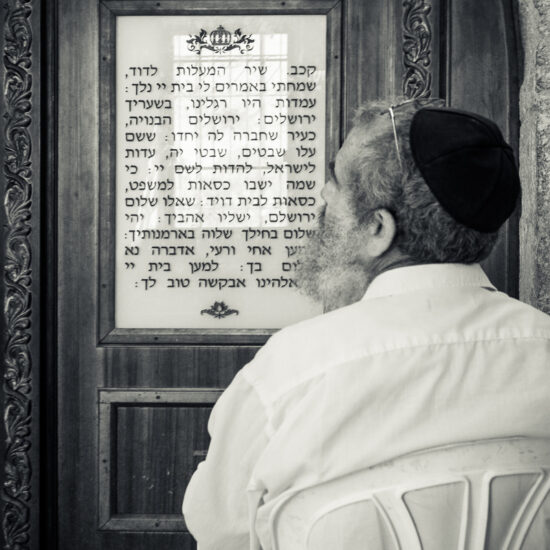 קכב. שיר המעלות לדוד,
שמחתי באמרים לי בית יי נלך:
עמדות היו רגלינו, בשעריך
ירושלים: ירושלים הבנויה,
כעיר שחברה לה יחדו: ששם
עלו שבטים, שבטי יה, עדות
לישראל, להדות לשם יי: כי
שמה ישבו כסאות למשפט,
כסאות לבית דויד: שאלו שלום
ירושלם, ישליו אהביך: יהי
שלום בחילך שלוה בארמנותיך:
אחי ורעי, אדברה נא
בך: למען בית יי
אלהינו אבקשה טוב לך: